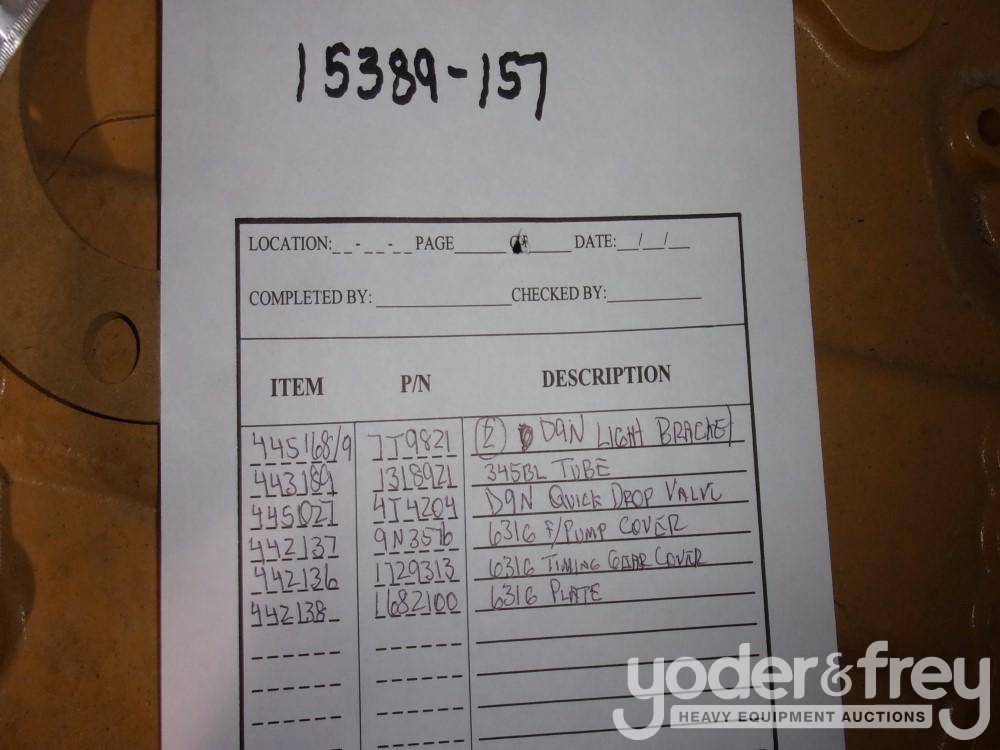 15389-157
LOCATION:_ _-_ _-_ _ PAGE_____ OF_____ DATE:__/__/__
COMPLETED BY: ______________ CHECKED BY:__________
ITEM P/N DESCRIPTION
445168/9 7T9821 (2) D9N LIGHT BRACKET
443189 1318921 345BL TUBE
445027 4T4204 D9N QUICK DROP VALVE
442137 9N3576 631G F/PUMP COVER
442136 1729313 631G TIMING GEAR COVER
442138 1682100 631G PLATE
yoder&frey
HEAVY EQUIPMENT AUCTIONS